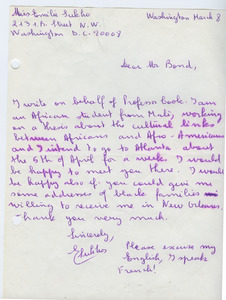 Miss Emilie
Washington March 8
Street N.W.
Washington D.C. 20008
Dear Mr Bond,
I write on behalf of Professor Cook. I am
an African student from Mali, working
on a thesis about the cultural links
between Africans and Afro-Americans
and I intend to go to Atlanta about
the 5th of April for a week. I would
be happy to meet you there. I would
be happy also if you could give me
some address of black families
willing to receive me in New Orleans.
Thank you very much.
Sincerely,
Please excuse my
English, I speak
French!